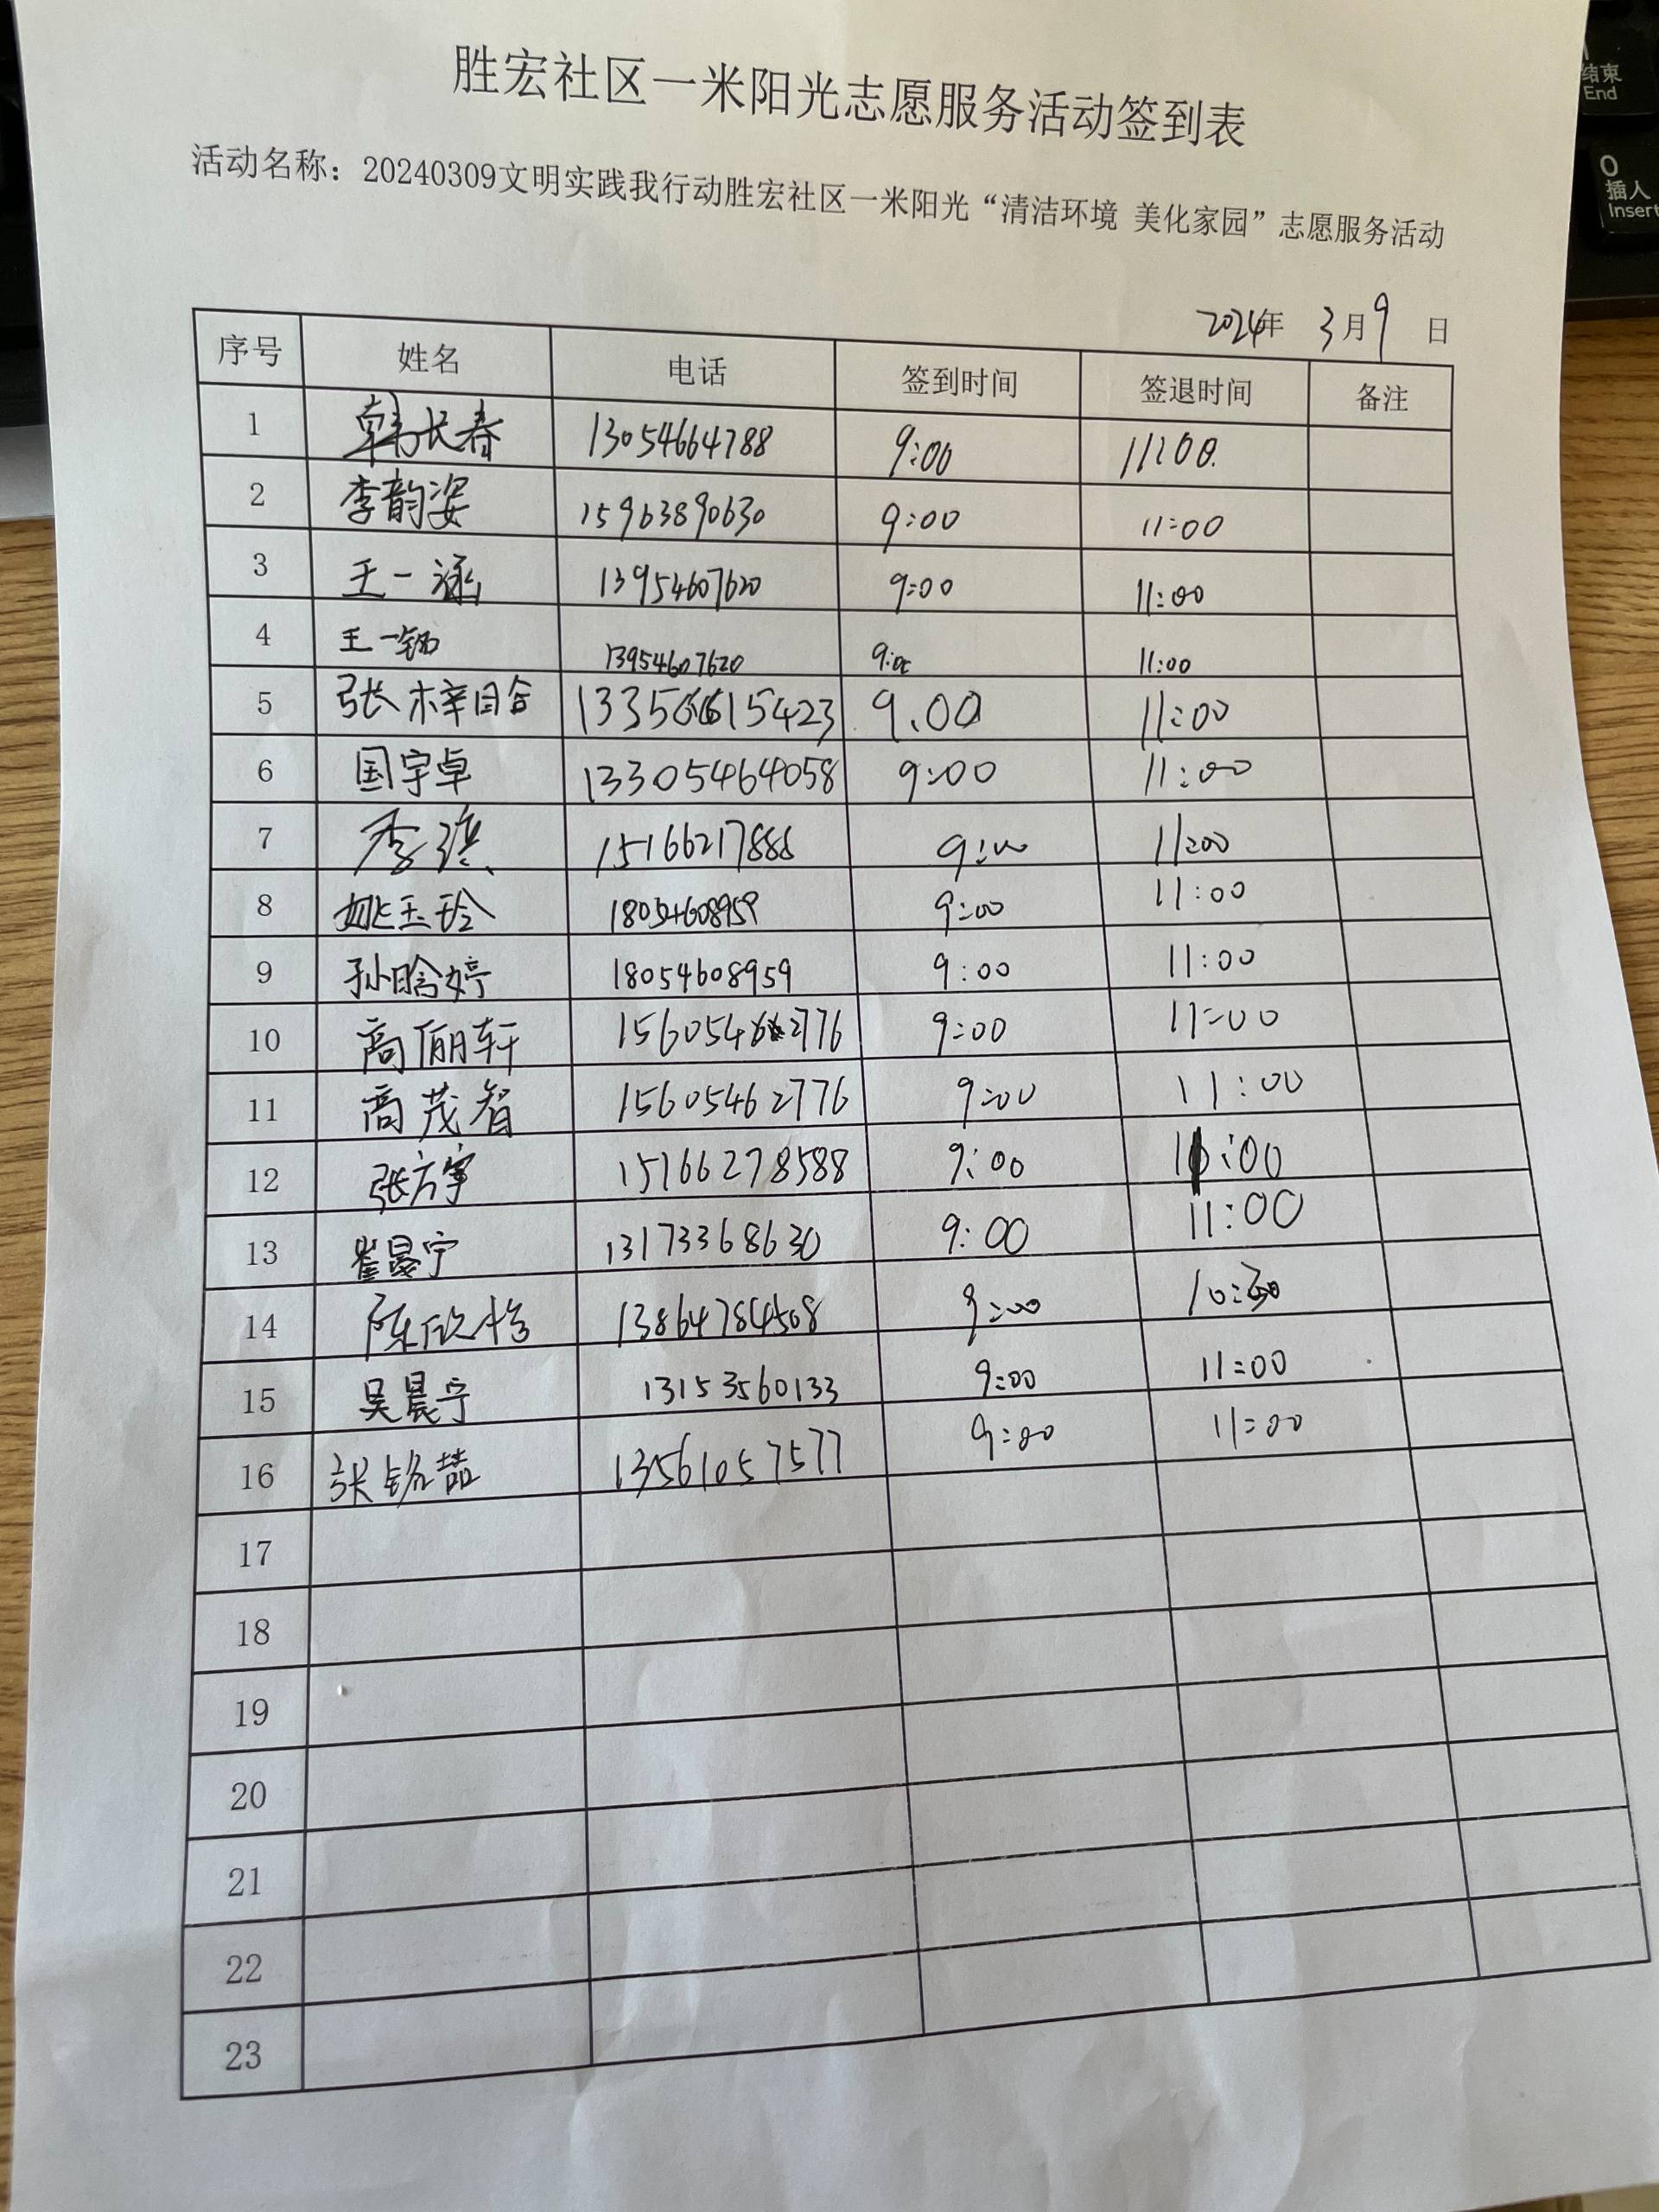 胜宏社区一米阳光志愿服务活动签到表
活动名称：20240309文明实践我行动胜宏社区一米阳光“清洁环境 美化家园”志愿服务活动
2024年 3月9日
序号 姓名 电话 签到时间 签退时间 备注
1 韩长春 13054664788 9:00 11:00.
2 李韵姿 15963890630 9:00 11:00
3 王一涵 13954607620 9:00 11:00
4 王一 13954607620 11:00
5 张梓晗 9.00 11:00
6 国宇卓 13305464058 9:00 11:00
7 李 15166217888 9:00 11:00
8 姚玉玲 18054608959 9:00 11:00
9 孙晗婷 18054608959 9:00 11:00
10 高俪轩 9:00 11:00
11 高茂智 15605462776 9:00 11:00
12 张方宇 15166278588 9:00 11:00
13 崔晏宁 13173368630 9:00 11:00
14 陈欣怡 13864784508 9:00 10:30
15 吴晨宁 13153560133 9:00 11:00
16 张铭喆 13561057577 9:00 11:00
17
18
19
20
21
22
23
结束
End
0
插入
Insert